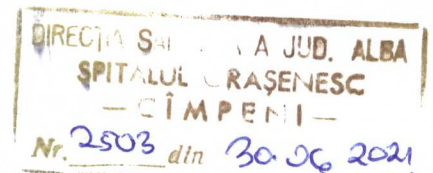 DIRECȚIA A JUD. ALBA
SPITALUL ORAȘENESC
— CÎMPENI —
Nr. 2503 din 30.06 2021